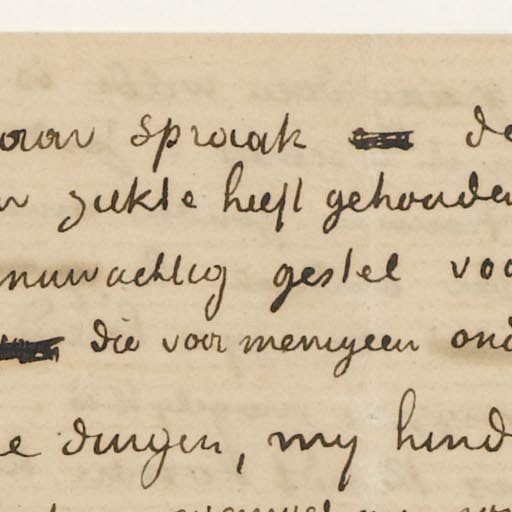 spraak de
ziekte heeft gehouden
zenuwachtig gestel voo
die voor menigeen ond
e dingen, my hind